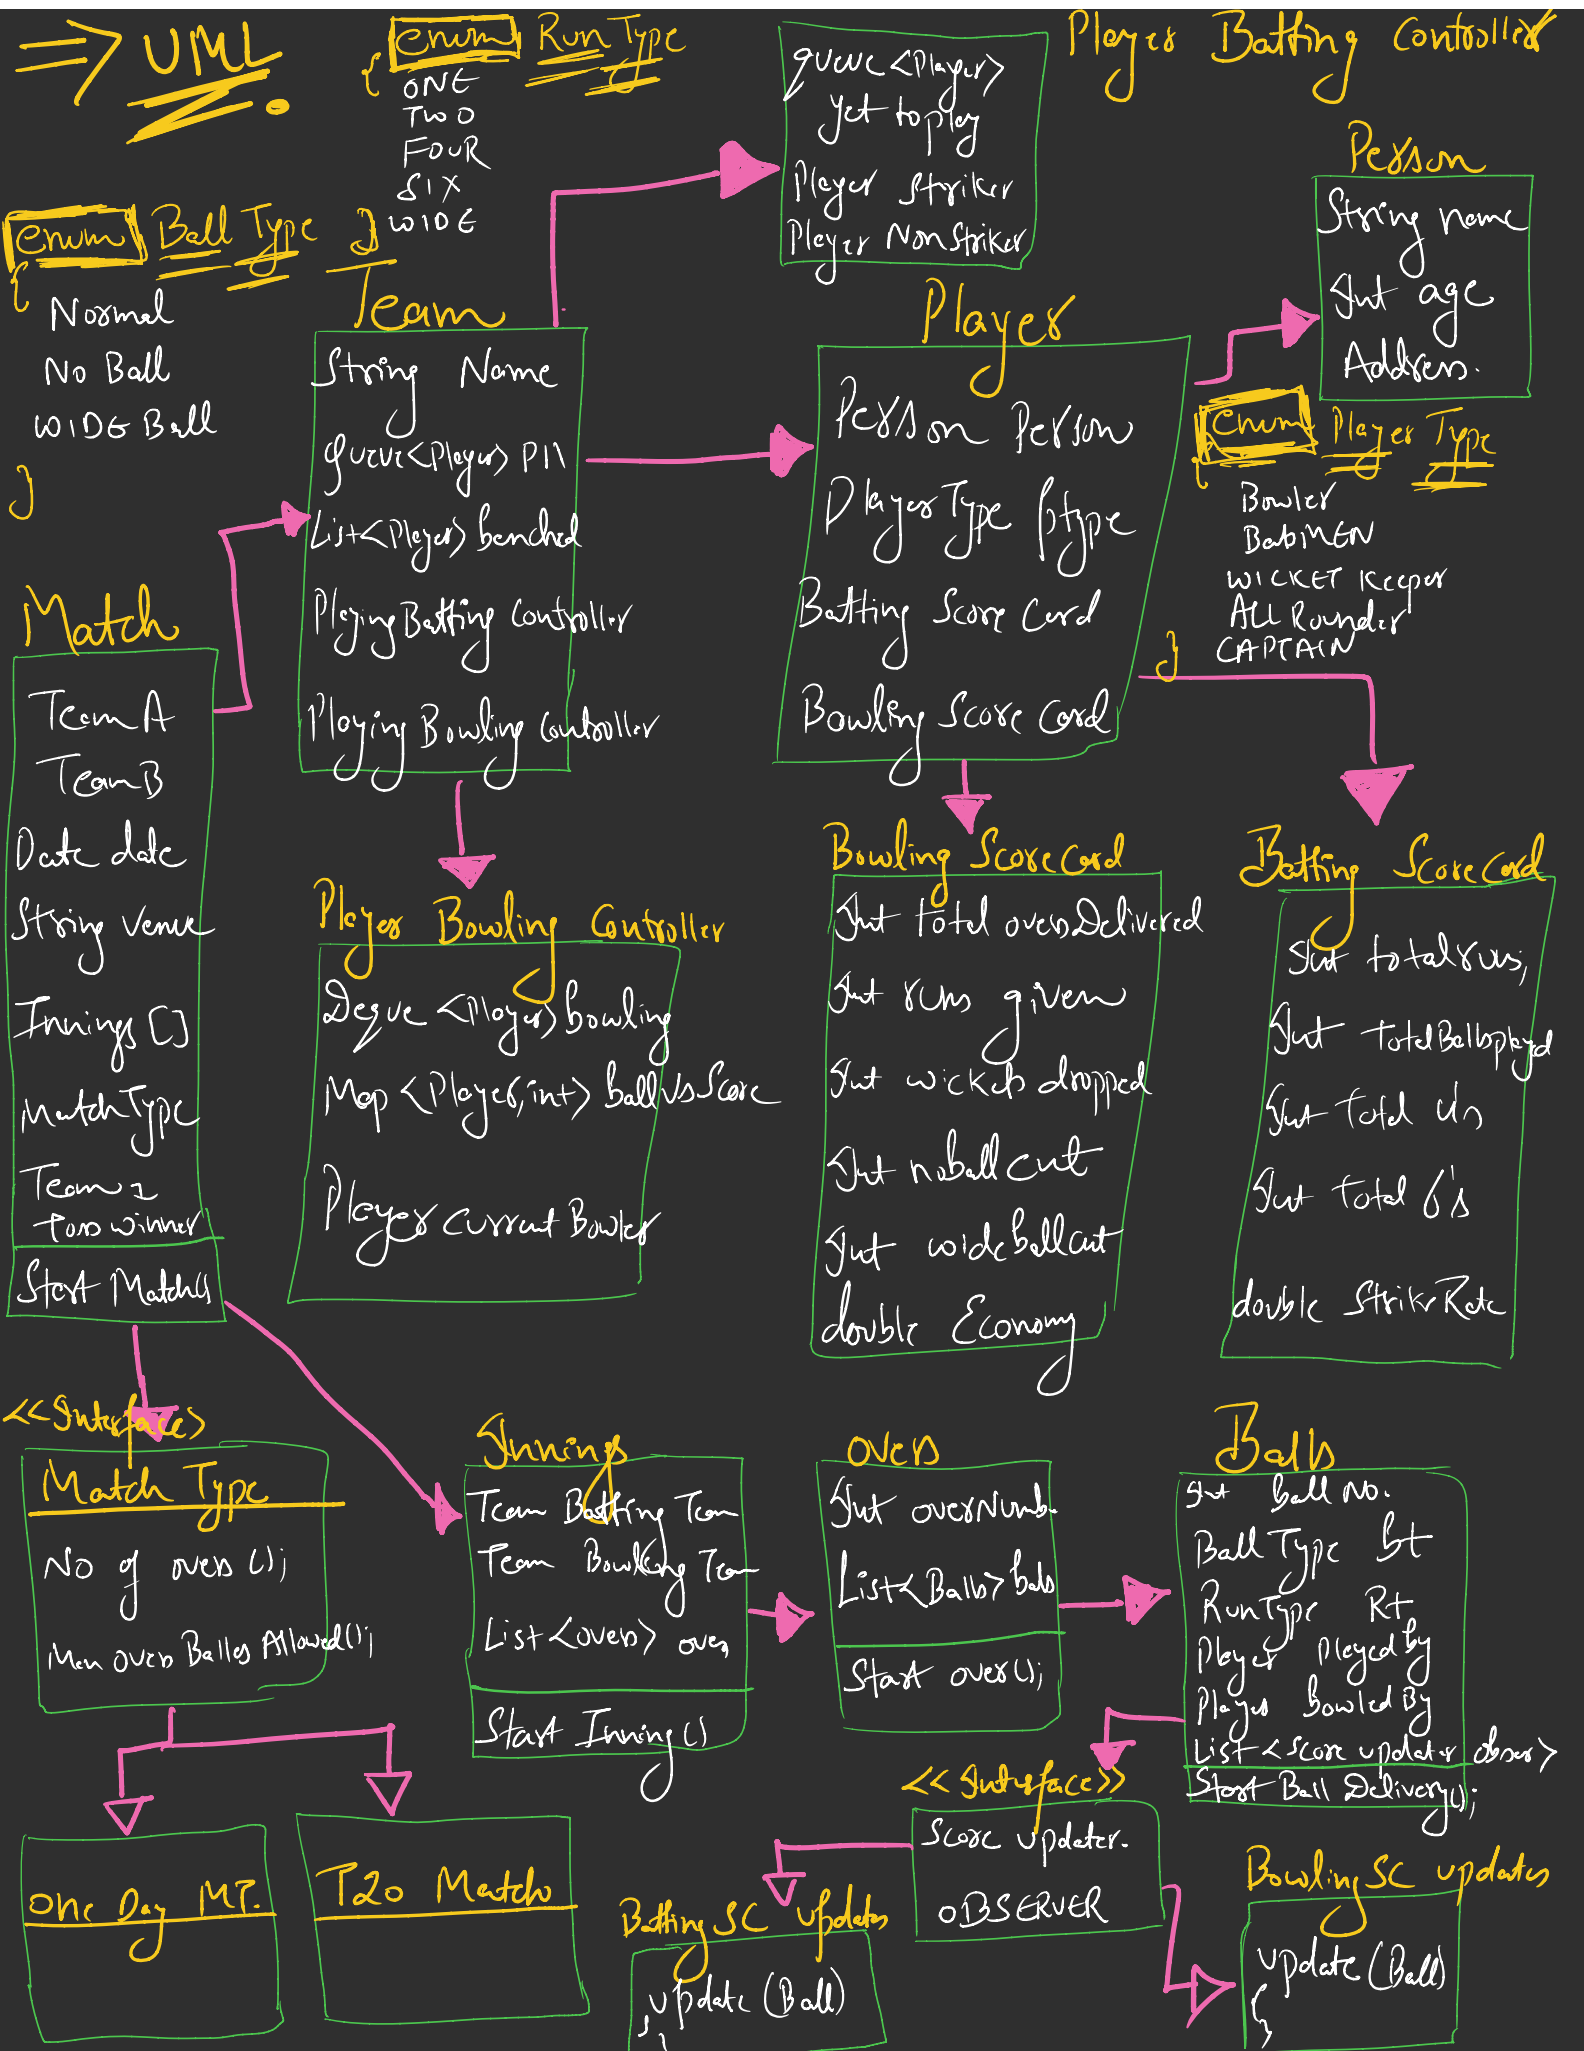 => UML
enum Run Type
{
ONE
TWO
FOUR
SIX
WIDE
}
enum Ball Type
{
Normal
No Ball
WIDE Ball
}
Player Batting Controller
queue <Player>
yet to play
Player Striker
Player NonStriker
Person
String name
Int age
Address.
Team
String Name
queue<Player> P11
List<Player> benched
Playing Batting Controller
Playing Bowling Controller
Player
Person Person
Player Type ptype
Batting Score Card
Bowling Score Card
enum Player Type
{
Bowler
BatsMEN
WICKET Keeper
ALL Rounder
CAPTAIN
}
Match
Team A
Team B
Date date
String Venue
Innings []
Match Type
Team
toss winner
Start Match()
Player Bowling Controller
Deque <Player> bowling
Map <Player, int> Ball Vs Score
Player current Bowler
Bowling ScoreCard
Int total overs Delivered
Int runs given
Int wickets dropped
Int noball cnt
Int wide ball cnt
double Economy
Batting ScoreCard
Int total runs;
Int total Balls played
Int Total 4's
Int Total 6's
double Strike Rate
<<Interface>
Match Type
No of overs ();
Max Overs Balles Allowed();
Innings
Team Batting Team
Team Bowling Team
List <overs> over,
Start Inning ()
overs
Int over Numb.
List<Balls> balls
Start over();
Balls
Int ball no.
Ball Type bt
Run Type Rt,
Player Played by
Player Bowled By
List <Score updater obser>
Start Ball Delivery();
One Day MT.
T20 Match
<<Interface>>
Score updater.
OBSERVER
Batting SC updates
update (Ball)
{
}
Bowling SC updates
update (Ball)
{
}